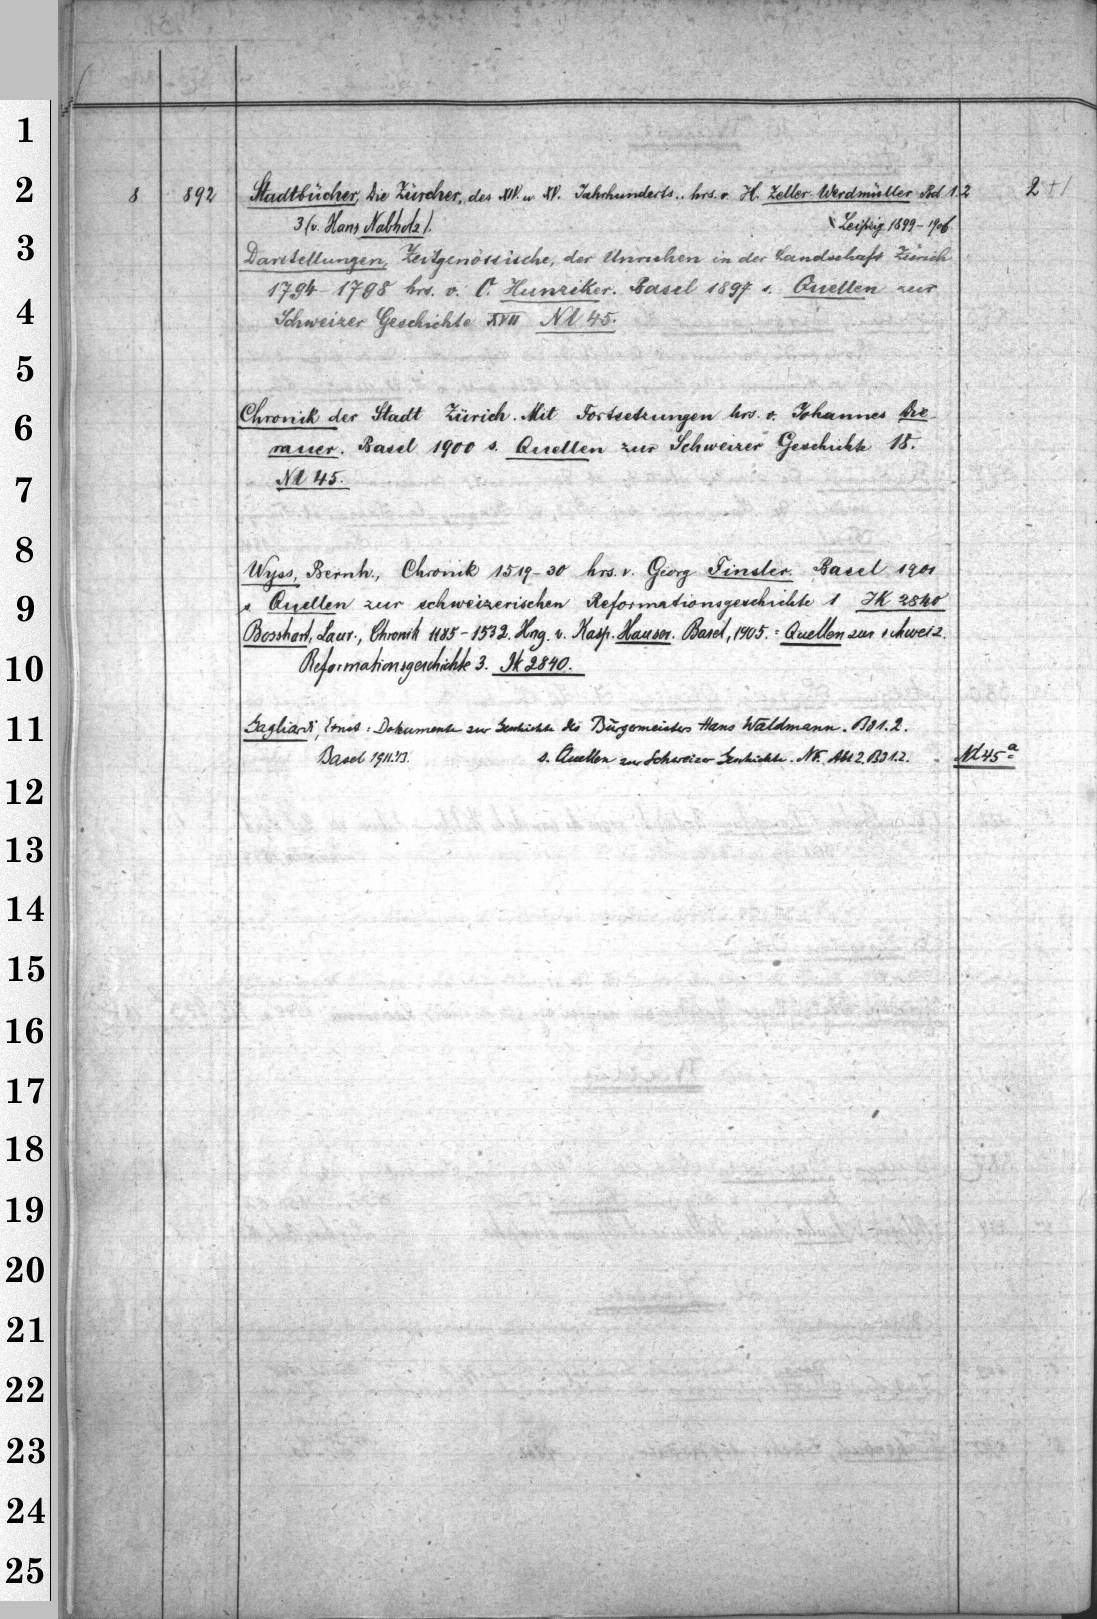 8 892 Stadtbücher, Die Zürcher, des XIV. u XV. Jahrhunderts.. hrs. v. H. Zeller-Werdmüller Bd 1.2 2 +1
3 (v. Hans Nabholz). Leipzig 1899-1906
Darstellungen, Zeitgenössische, der Unruhen in der Landschaft Zürich
1794-1798 hrs. v. O. Hunziker. Basel 1897 s. Quellen zur
Schweizer Geschichte XVII Nl 45.
Chronik der Stadt Zürich. Mit Fortsetzungen hrs. v. Johannes Die-
rauer. Basel 1900 s. Quellen zur Schweizer Geschichte 18.
Nl 45.
Wyss, Bernh., Chronik 1519-30 hrs. v. Georg Finsler. Basel 1901
s. Quellen zur schweizerischen Reformationsgeschichte 1 JK 2840
Bosshart, Laur., Chronik 1185-1532. Hng. v. Kasp. Hauser. Basel, 1905. = Quellen zur schweiz.
Reformationsgeschichte 3. Jk 2840.
Gagliardi, Ernst: Dokumente zur Geschichte des Bürgemeisters Hans Waldmann. Bd 1.2.
Basel 1911.13. s. Quellen zur Schweizer Geschichte. NF. Abt 2. Bd 1.2. Nl 45 a
1
2
3
4
5
6
7
8
9
10
11
12
13
14
15
16
17
18
19
20
21
22
23
24
25